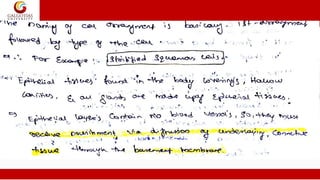 GALGOTIAS
UNIVERSITY
the naming of cell arrangement is basically 1st - arrangement
followed by type of the cell.
For Example : Stratified Squamous cells.
Epithelial tissues found in the body coverings, Hallow
cavities, & all glands are made up of Epithelial tissues.
Epithelial layers contain no blood vessels, so, they must
receive nourishment via diffusion of underlying, connective
tissue through the basement membrane.